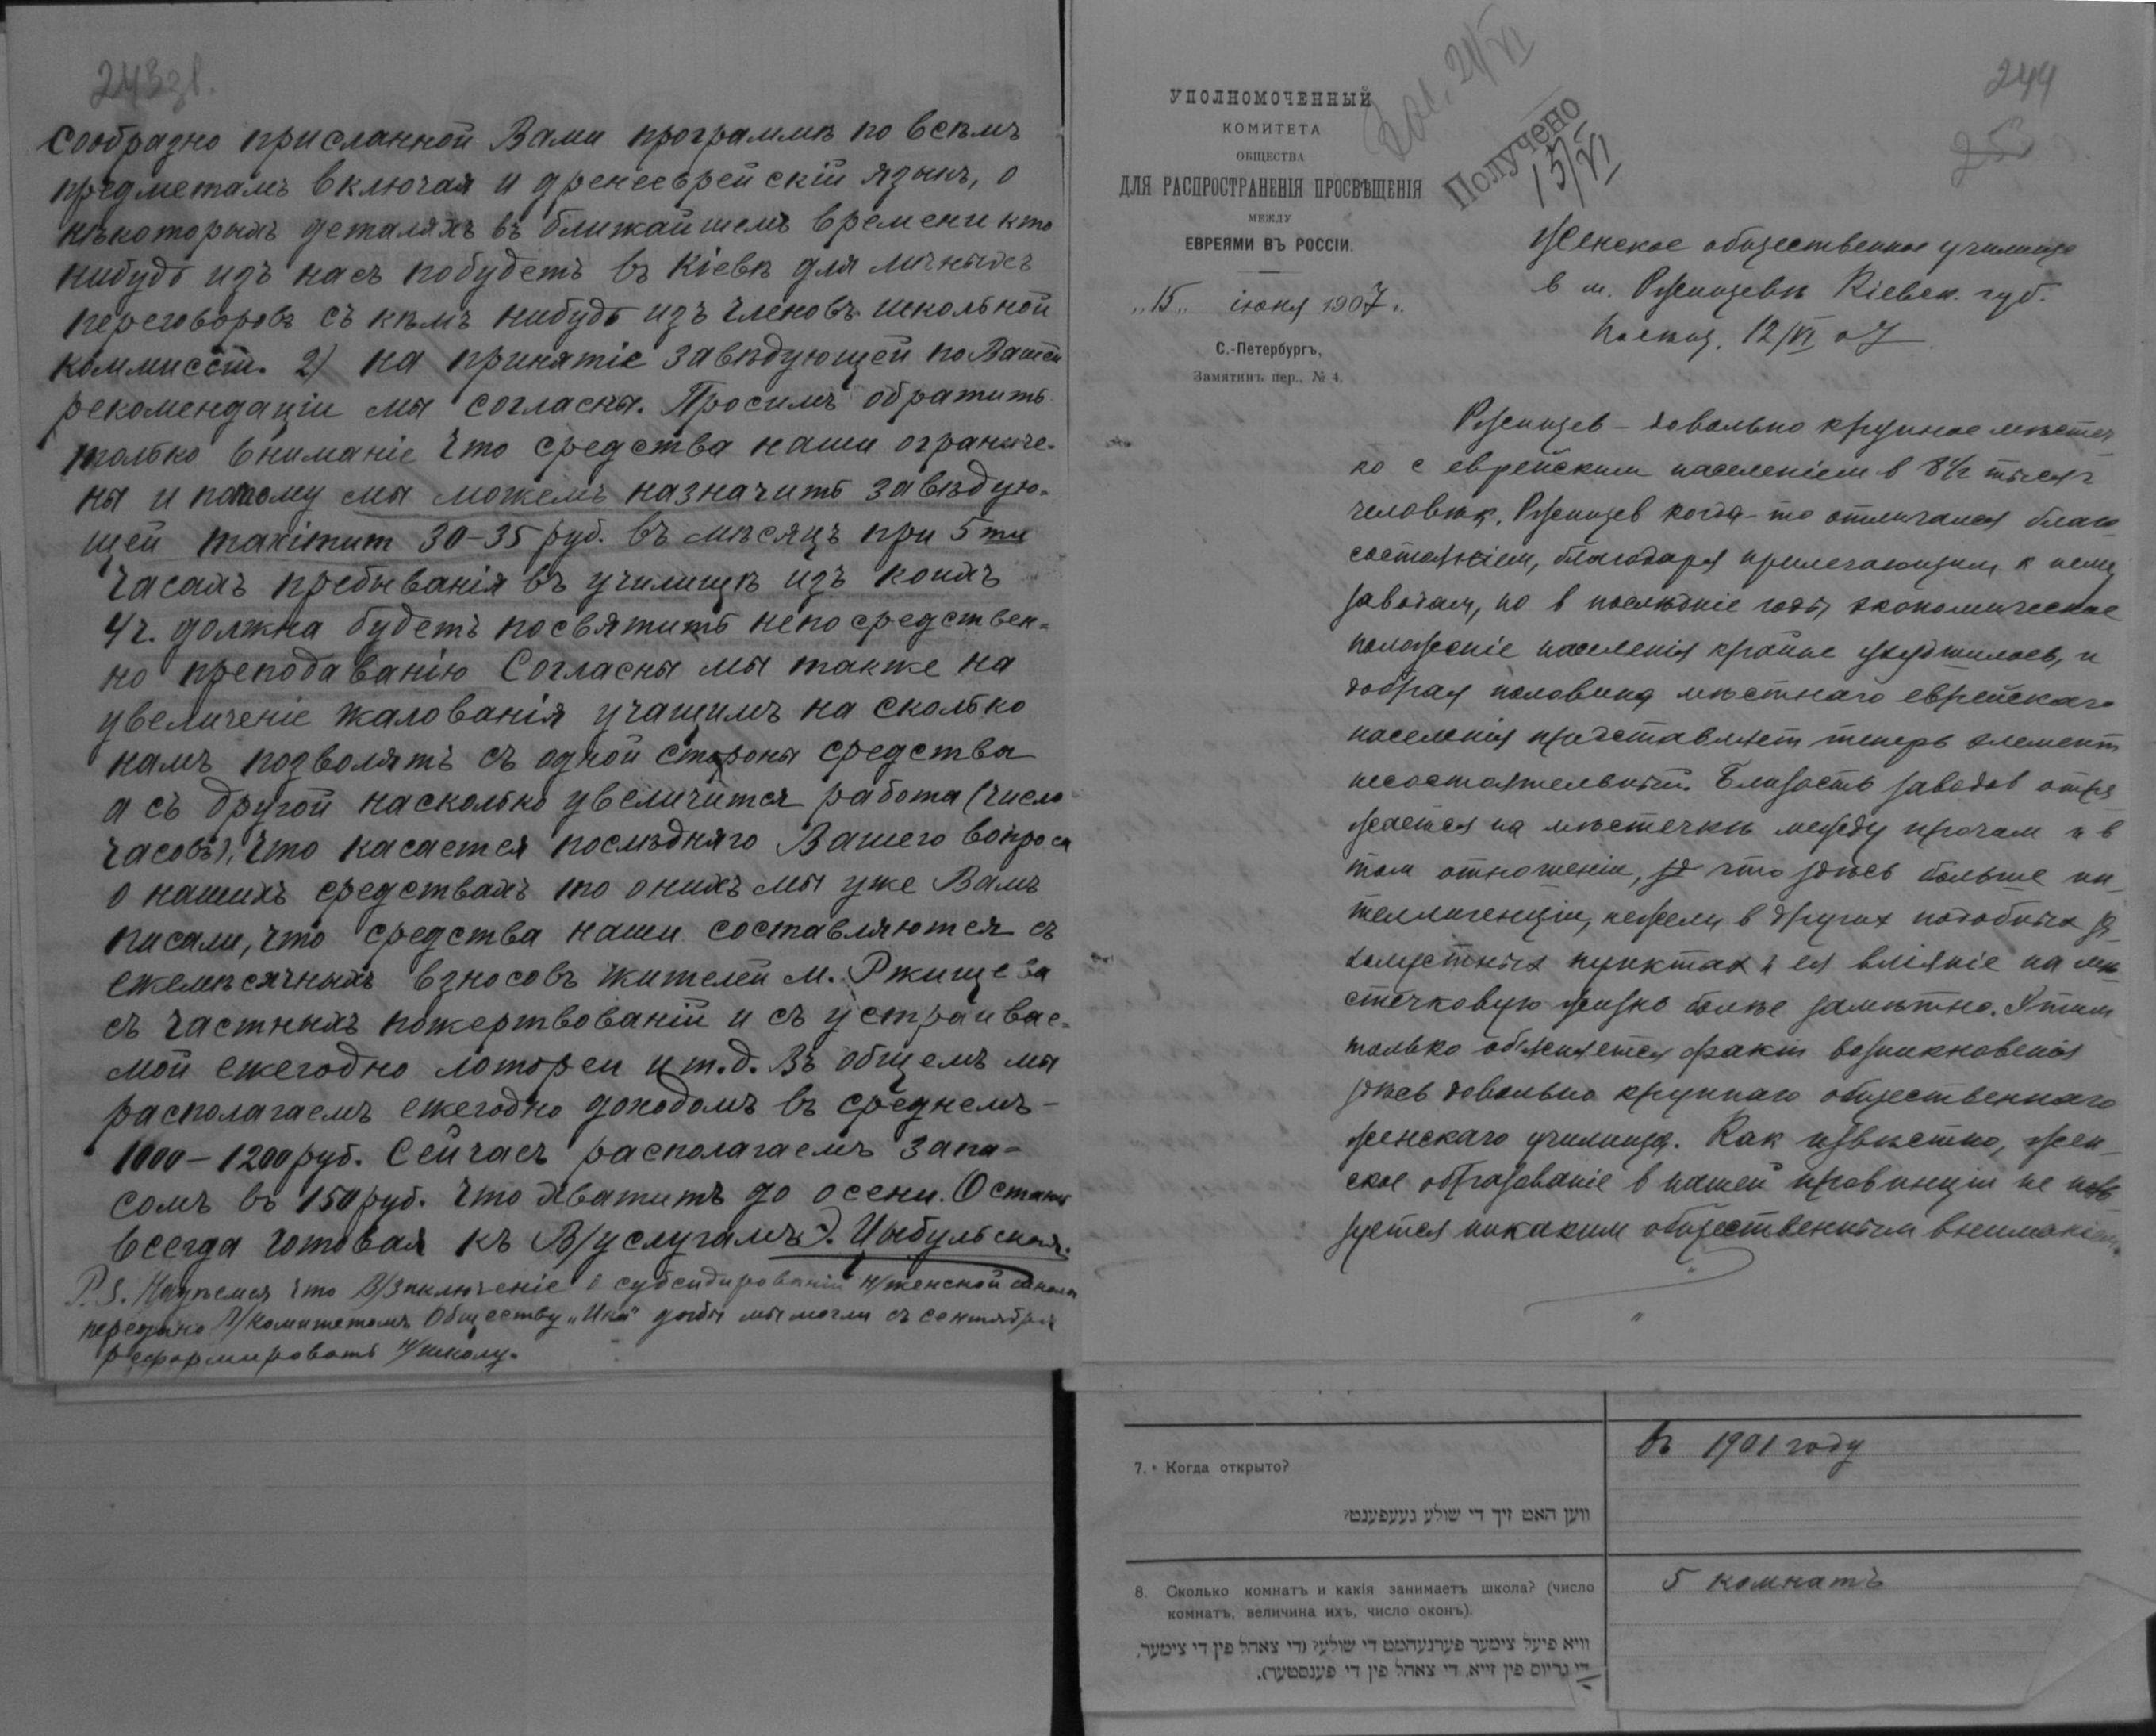 243 об.
сообразно присланной Вами программѣ по всѣмъ
предметамъ включая и дренееврейскій языкъ, о
нѣкоторыхъ деталяхъ въ ближайшемъ времени кто
нибудь изъ насъ побудетъ въ Кіевѣ для личныхъ
переговоровъ съ кѣмъ нибудь изъ членовъ школьной
коммиссіи. 2) на принятіе завѣдующей по Вашей
рекомендаціи мы согласны. Просимъ обратить
только вниманіе что средства наши ограниче-
ны и потому мы можемъ назначить завѣдую-
щей maximum 30-35 руб. въ мѣсяцъ при 5ти
часахъ пребыванія въ училищѣ изъ коихъ
4 ч. должна будетъ посвятить непосредствен-
но преподаванію Согласны мы также на
увеличеніе жалованія учащимъ на сколько
намъ позволятъ съ одной стороны средства
а съ другой насколько увеличится работа (число
часовъ). Что касается послѣдняго Вашего вопроса
о нашихъ средствахъ то о нихъ мы уже Вамъ
писали, что средства наши составляются съ
ежемѣсячныхъ взносовъ жителей м. Ржищева
съ частныхъ пожертвованій и съ устраивае-
мой ежегодно лотореи и т.д. Въ общемъ мы
располагаемъ ежегодно доходомъ въ среднемъ -
1000-1200 руб. Сейчасъ располагаемъ запа-
сомъ въ 150 руб. что хватитъ до осени. Остаюсь
всегда готовая къ В/услугамъ Э. Цыбульская.
P.S. Надѣемся что В/заключеніе о субсидированіи н/женской школы
передано В/Комитетомъ Обществу „Ика" дабы мы могли съ сентября
реформировать н/школу.
244
УПОЛНОМОЧЕННЫЙ
КОМИТЕТА
ОБЩЕСТВА
ДЛЯ РАСПРОСТРАНЕНІЯ ПРОСВѢЩЕНІЯ
МЕЖДУ
ЕВРЕЯМИ ВЪ РОССІИ.
„15„ іюня 1907 г.
С.-Петербургъ,
Замятинъ пер., № 4.
Получено
15/VI
Женское общественное училище
в м. Ржищевѣ Кіевск. губ.
Посѣщ. 12/VI 07
Ржищев - довольно крупное мѣстеч
ко с еврейским населеніем в 8½ тысяч
человѣк. Ржищев когда-то отличался благо
состояніем, благодаря прилегающим к нему
заводам, но в послѣдніе годы экономическое
положеніе населенія крайне ухудшилось, и
добрая половина мѣстнаго еврейскаго
населенія представляет теперь элемент
несостоятельный. Близость заводов отра
жается на мѣстечкѣ между прочим и в
том отношеніи, что здѣсь больше ин-
теллигенціи, нежели в других подобных за-
холустных пунктах и ея вліяніе на мѣ
стечковую жизнь болѣе замѣтно. Этим
только объясняется факт возникновенія
здѣсь довольно крупнаго общественнаго
женскаго училища. Как извѣстно, жен-
ское образованіе в нашей провинціи не поль
зуется никаким общественным вниманіем.
7. Когда открыто?
ווען האט זיך די שולע געעפענט?
въ 1901 году
8. Сколько комнатъ и какія занимаетъ школа? (число
комнатъ, величина ихъ, число оконъ).
וויא פיעל צימער פערנעהמט די שולע? (די צאהל פין די צימער,
די גרויס פין זייא, די צאהל פין די פענסטער).
5 комнатъ